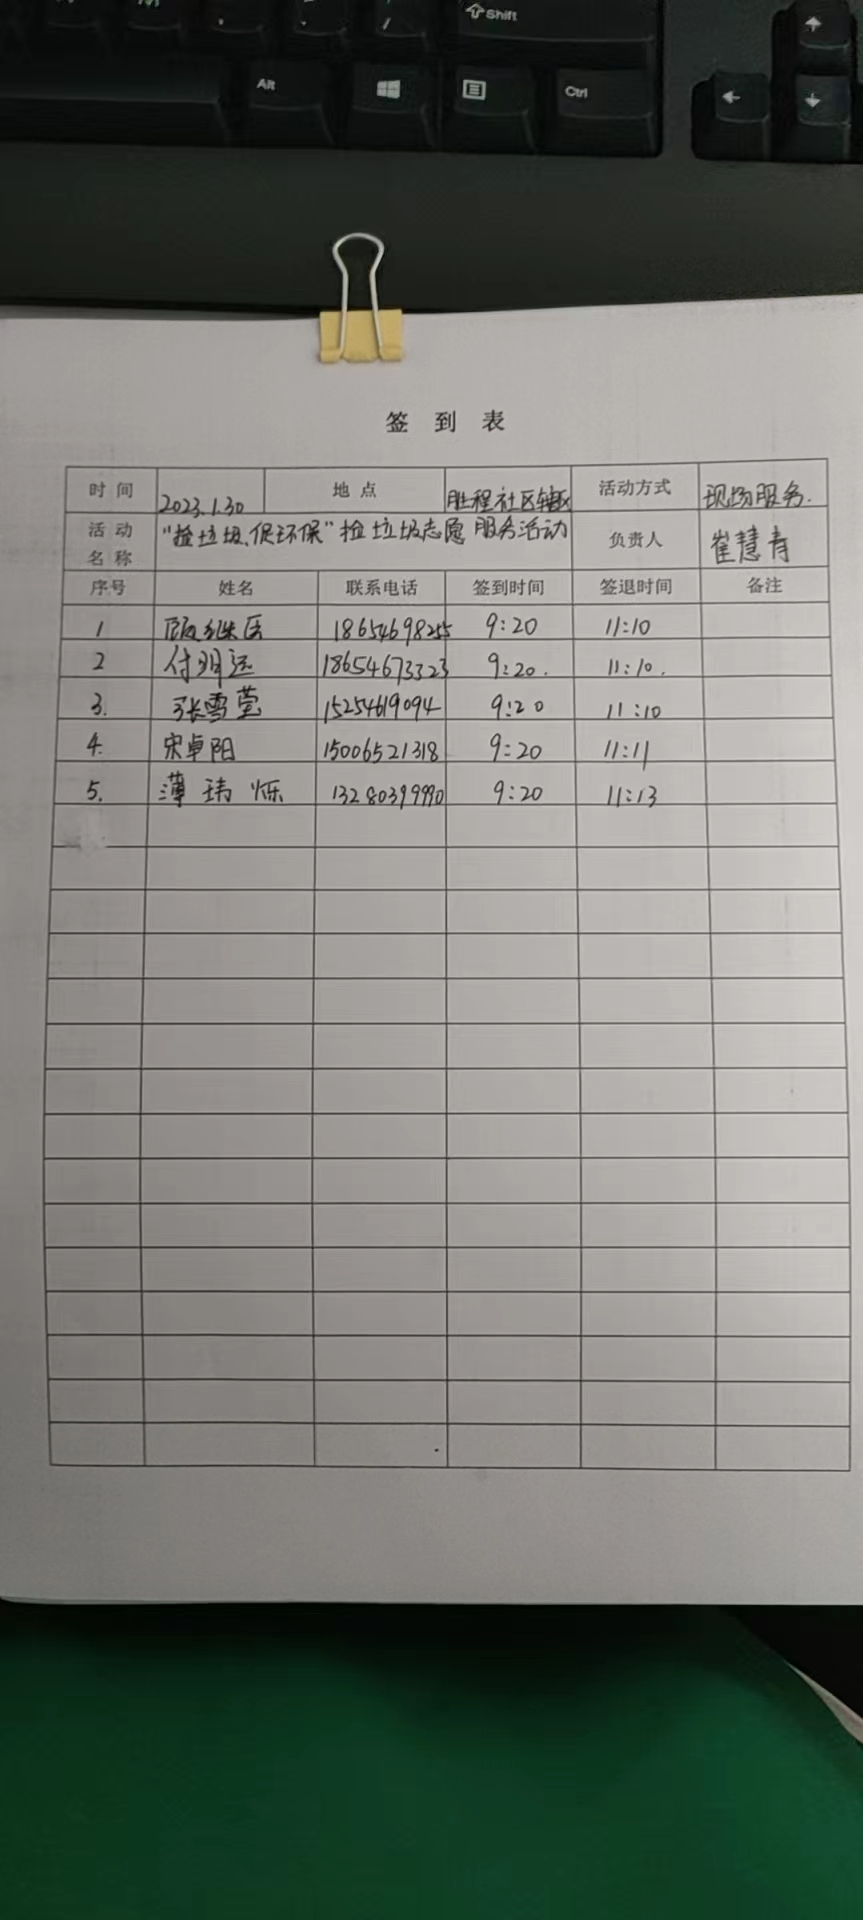 Shift
Alt
Ctrl
签到表
时间 2023.1.30 地点 胜程社区辖区 活动方式 现场服务.
活动名称 "捡垃圾、保环保"捡垃圾志愿服务活动 负责人 崔慧青
序号 姓名 联系电话 签到时间 签退时间 备注
1 18654698255 9:20 11:10
2 付明远 18654673323 9:20. 11:10.
3. 张雪莹 15254619094 9:20 11:10
4. 宋卓阳 15006521318 9:20 11:11
5. 薄玮烁 13280399990 9:20 11:13